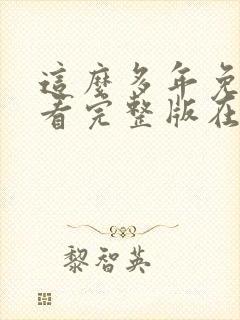 這麼多年免
看完整版在
黎智英